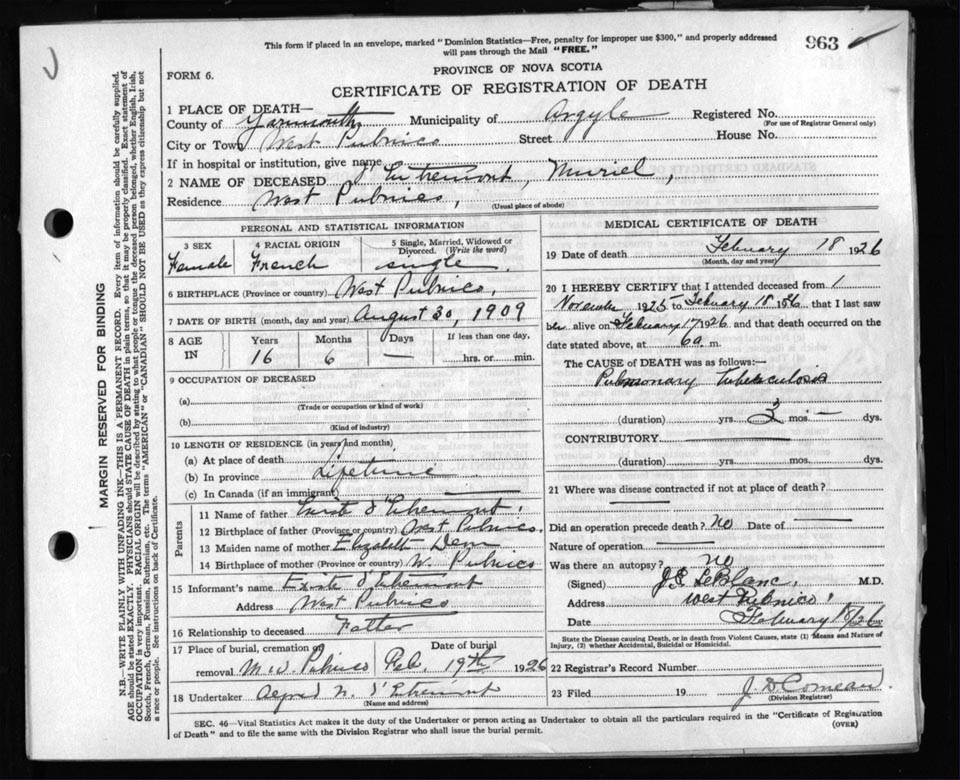 This form if placed in an envelope, marked "Dominion Statistics—Free, penalty for improper use $300," and properly addressed
will pass through the Mail "FREE."
963
FORM 6.
PROVINCE OF NOVA SCOTIA
CERTIFICATE OF REGISTRATION OF DEATH
1 PLACE OF DEATH—
County of Yarmouth Municipality of Argyle Registered No.
(For use of Registrar General only)
City or Town West Pubnico Street House No.
If in hospital or institution, give name
2 NAME OF DECEASED d'Entremont, Muriel,
Residence West Pubnico,
(Usual place of abode)
PERSONAL AND STATISTICAL INFORMATION
3 SEX 4 RACIAL ORIGIN 5 Single, Married, Widowed or Divorced. (Write the word)
Female French single.
6 BIRTHPLACE (Province or country) West Pubnico,
7 DATE OF BIRTH (month, day and year) August 30, 1909
8 AGE IN Years Months Days If less than one day,
16 6 — hrs. or min.
9 OCCUPATION OF DECEASED
(a)
(Trade or occupation or kind of work)
(b)
(Kind of industry)
10 LENGTH OF RESIDENCE (in years and months)
(a) At place of death
(b) In province Lifetime
(c) In Canada (if an immigrant)
Parents
11 Name of father d'Entremont
12 Birthplace of father (Province or country) West Pubnico.
13 Maiden name of mother Elizabeth
14 Birthplace of mother (Province or country) W. Pubnico
15 Informant's name d'Entremont
Address West Pubnico
16 Relationship to deceased Father
17 Place of burial, cremation or removal Date of burial
M. W. Pubnico Feb. 19th 1926
18 Undertaker N. d'Entremont
(Name and address)
MEDICAL CERTIFICATE OF DEATH
19 Date of death February 18 1926
(Month, day and year)
20 I HEREBY CERTIFY that I attended deceased from 1
November 1925 to February 18 that I last saw
her alive on February 17 1926 and that death occurred on
date stated above, at 6 a. m.
The CAUSE of DEATH was as follows:—
Pulmonary Tuberculosis
(duration) yrs. 3 mos — dys.
CONTRIBUTORY
(duration) yrs. mos. dys.
21 Where was disease contracted if not at place of death?
Did an operation precede death? No Date of
Nature of operation
Was there an autopsy? No
(Signed) LeBlanc, M.D.
Address West Pubnico
Date February
State the Disease causing Death, or in death from Violent Causes, state (1) Means and Nature of
Injury, (2) whether Accidental, Suicidal or Homicidal.
22 Registrar's Record Number
23 Filed 19 J. D. Comeau
(Division Registrar)
SEC. 46—Vital Statistics Act makes it the duty of the Undertaker or person acting as Undertaker to obtain all the particulars required in the "Certificate of Registration
of Death" and to file the same with the Division Registrar who shall issue the burial permit.
(OVER)
MARGIN RESERVED FOR BINDING
N.B.—WRITE PLAINLY WITH UNFADING INK—THIS IS A PERMANENT RECORD. Every item of information should be carefully supplied.
AGE should be stated EXACTLY. PHYSICIANS should STATE CAUSE OF DEATH in plain terms, so that it may be properly classified. Exact statement of
OCCUPATION is very important. RACIAL ORIGIN will be described by stating to what people or tongue the deceased person belonged, whether English, Irish,
Scotch, French, German, Russian, Ruthenian, etc. The terms "AMERICAN" or "CANADIAN" SHOULD NOT BE USED as they express citizenship but not
a race or people. See instructions on back of Certificate.